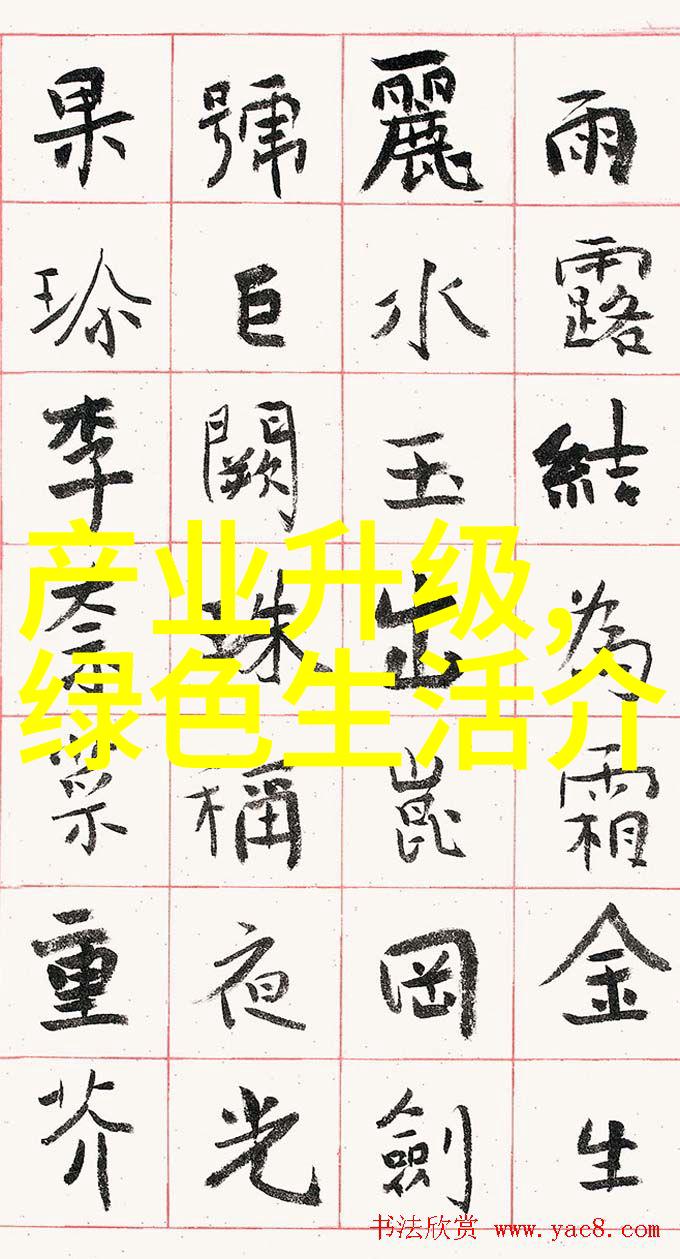 雨露結為霜金生
麗水玉出崑岡劍
號巨闕珠稱夜光
果珎李柰菜重芥
产业升级,
绿色生活介
书法欣赏 www.yac8.com